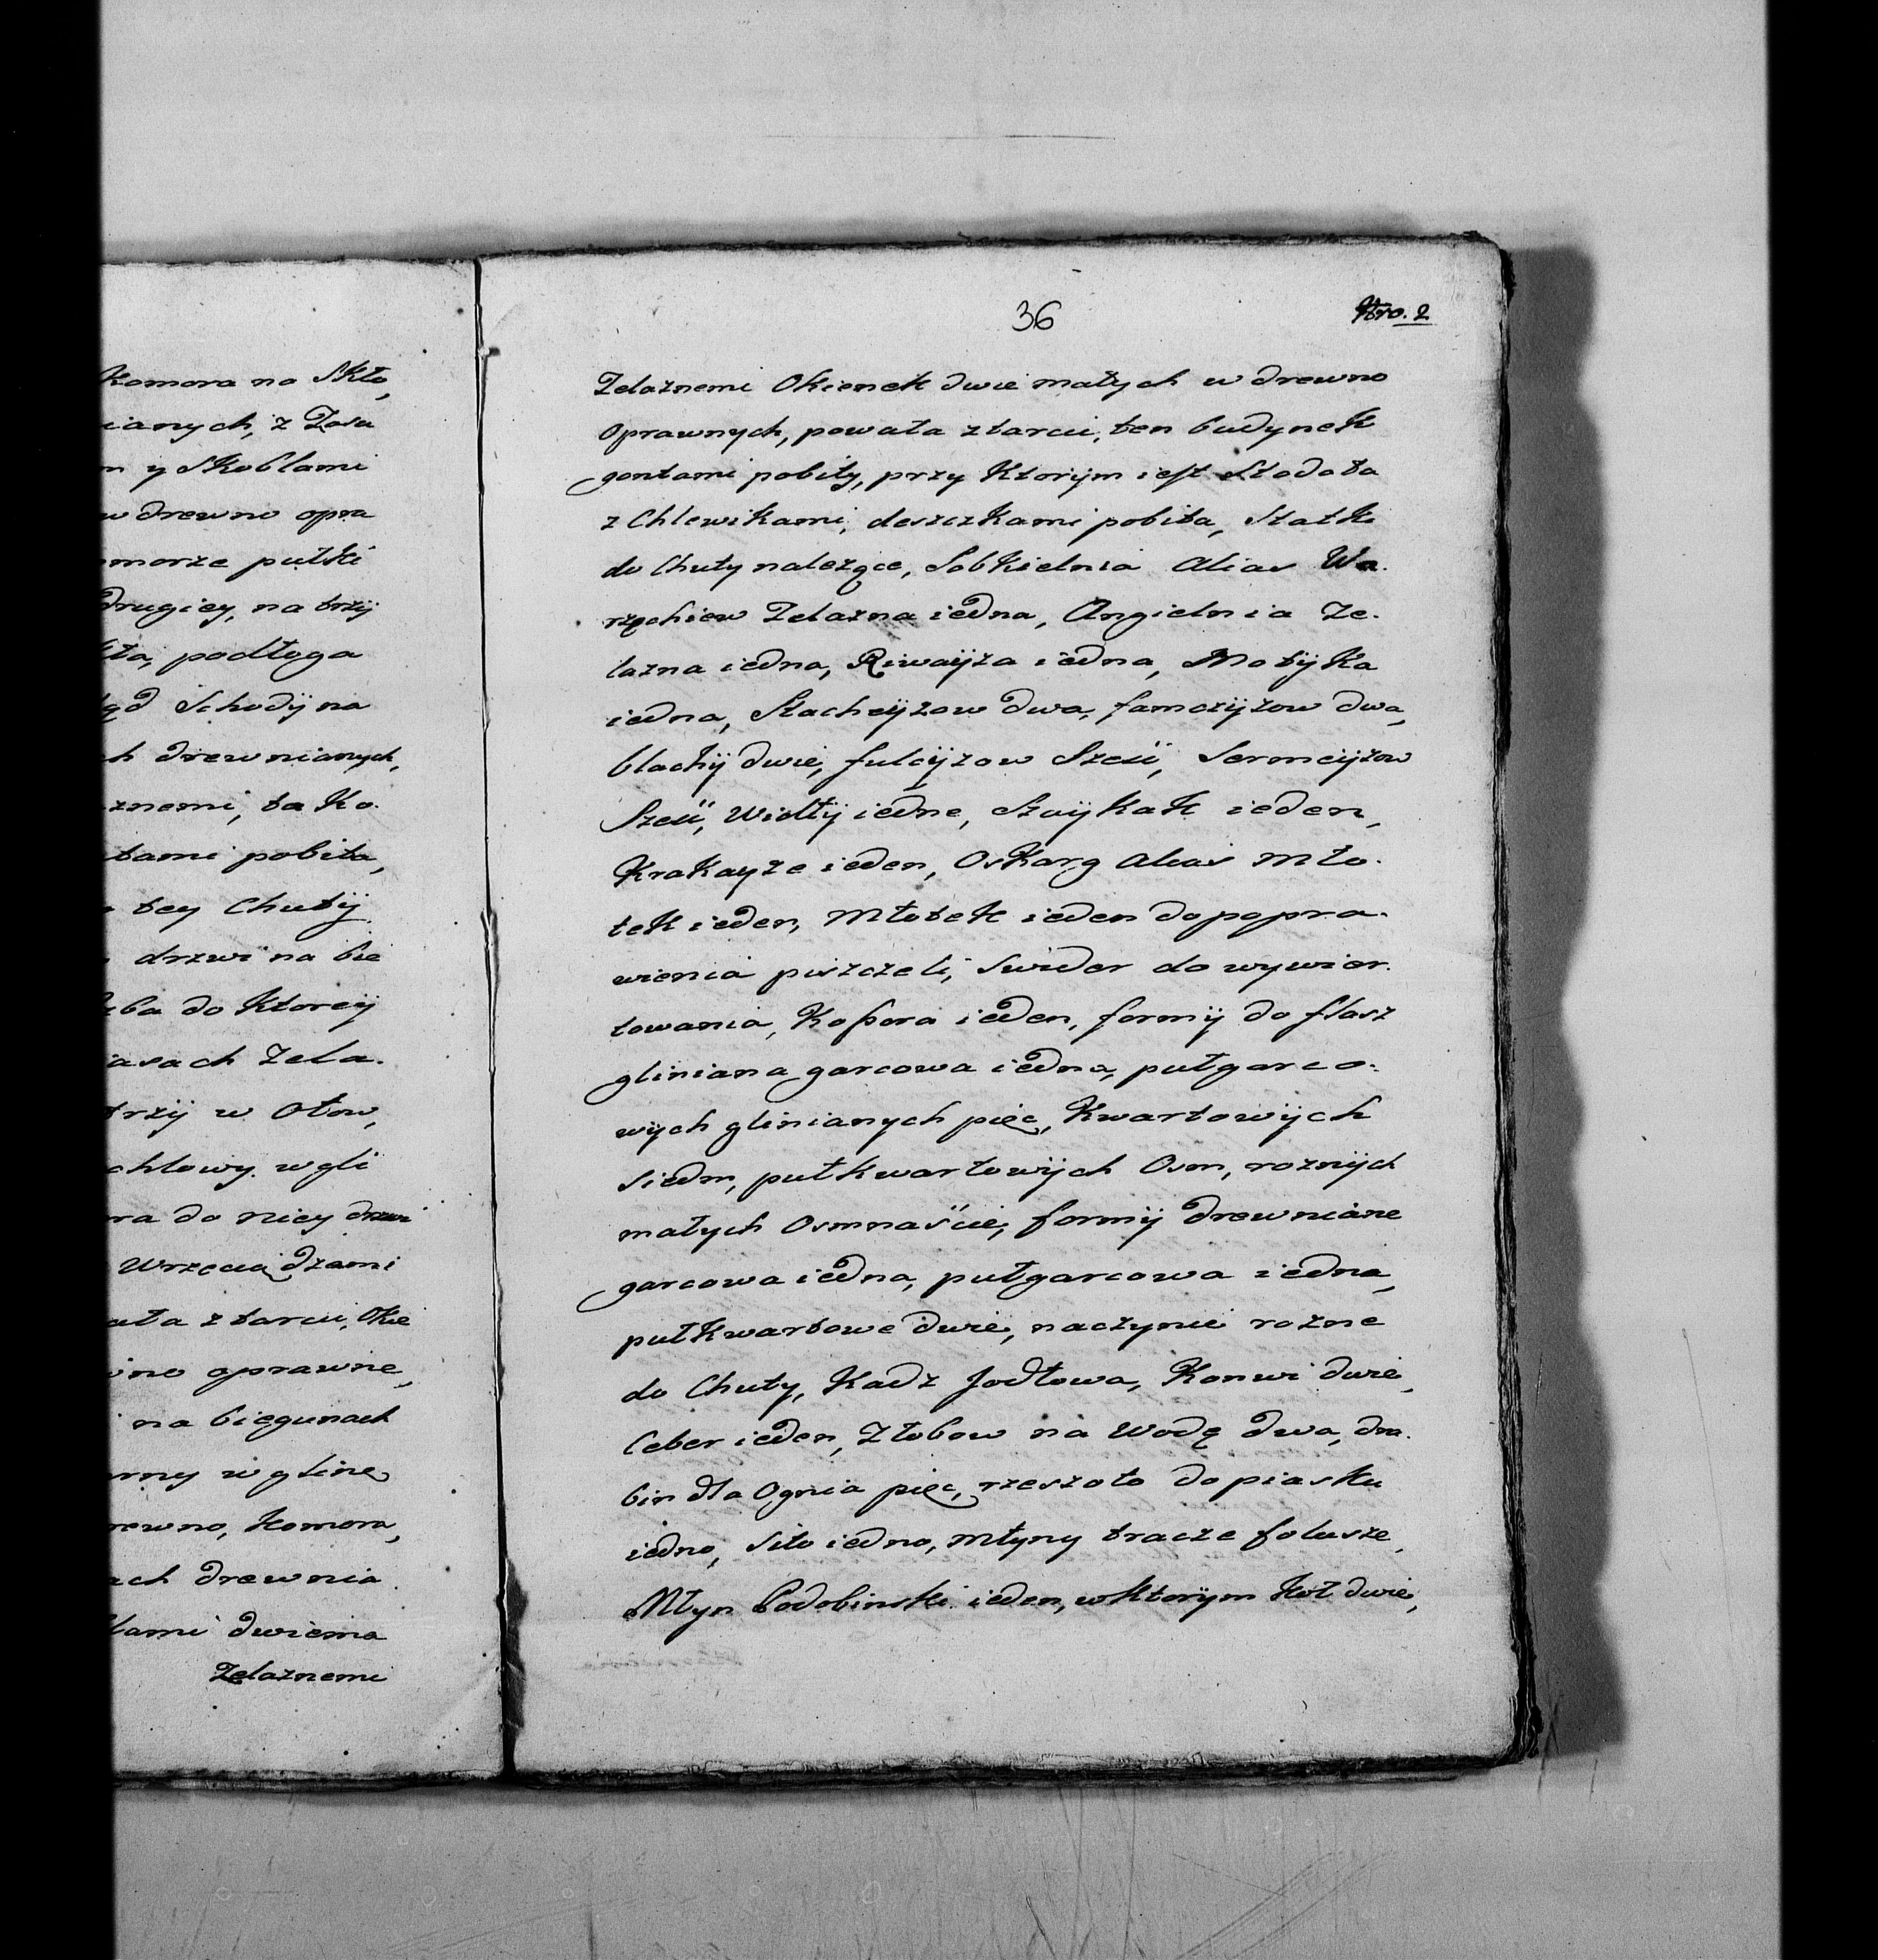 Komora na Skło,
ianych, z Zasu
m y Skoblami
w drewno opra
morze pułki
drugiey, na trzÿ
podłoga
SchodÿÌ na
h drewnianych,
znemi, ta Ko.
tami pobita,
tey Chutÿ
drzwi na bie
ba do Ktoreÿ
asach Zela.
trzÿ w Ołow,
chlowy w gli
ra do niey drzwi
Wrzeciądzami
ata z tarcic, Okie
wno oprawne,
na biegunach
arny w glinę
rewno, Komora,
ach drewnia
lami dwiema
Zelaznemi
36
Nro. 2
Zelaznemi Okienek dwie małych w drewno
Oprawnych, powała z tarcic, ten budynek
gontami pobity, przy Ktorÿm iest Stodoła
z Chlewikami, deszczkami pobita, Statki
do Chuty należące, Sobkielnia Alias Wa.
rząchiew Zelazna iedna, Angielnia Ze.
lazna iedna, Riwaÿza iedna, MotÿKa
iedna, Stacheÿzow dwa, famczÿzow dwa,
blachÿ dwie, fulcÿzow Sześć, Sermcÿzow
Sześć, Widłÿ iedne, SzaÿKaK ieden,
KraKayze ieden, OsKarg alias Mło.
teK ieden, MłoteK ieden do popra.
wienia piszczeli, Swider do wywier.
towania, Kopora ieden, formÿ do flasz
gliniana garcowa iedna, pułgarco.
wÿch glinianych pięc, Kwartowÿch
siedm, pułkwartowÿch Osm, roznÿch
małych Osmnaście, formÿ drewniane
garcowa iedna, pułgarcowa iedna,
pułKwartowe dwie, naczynie rozne
do Chuty, Kadz Jodłowa, Konwi dwie,
Ceber ieden, Złobow na Wodę dwa, dra.
bin dla Ognia pięc, rzeszoto do piasku
iedno, Sito iedno, Młyny tracze folusze,
Młyn Podobinski ieden, w Ktorÿm Koł dwie,